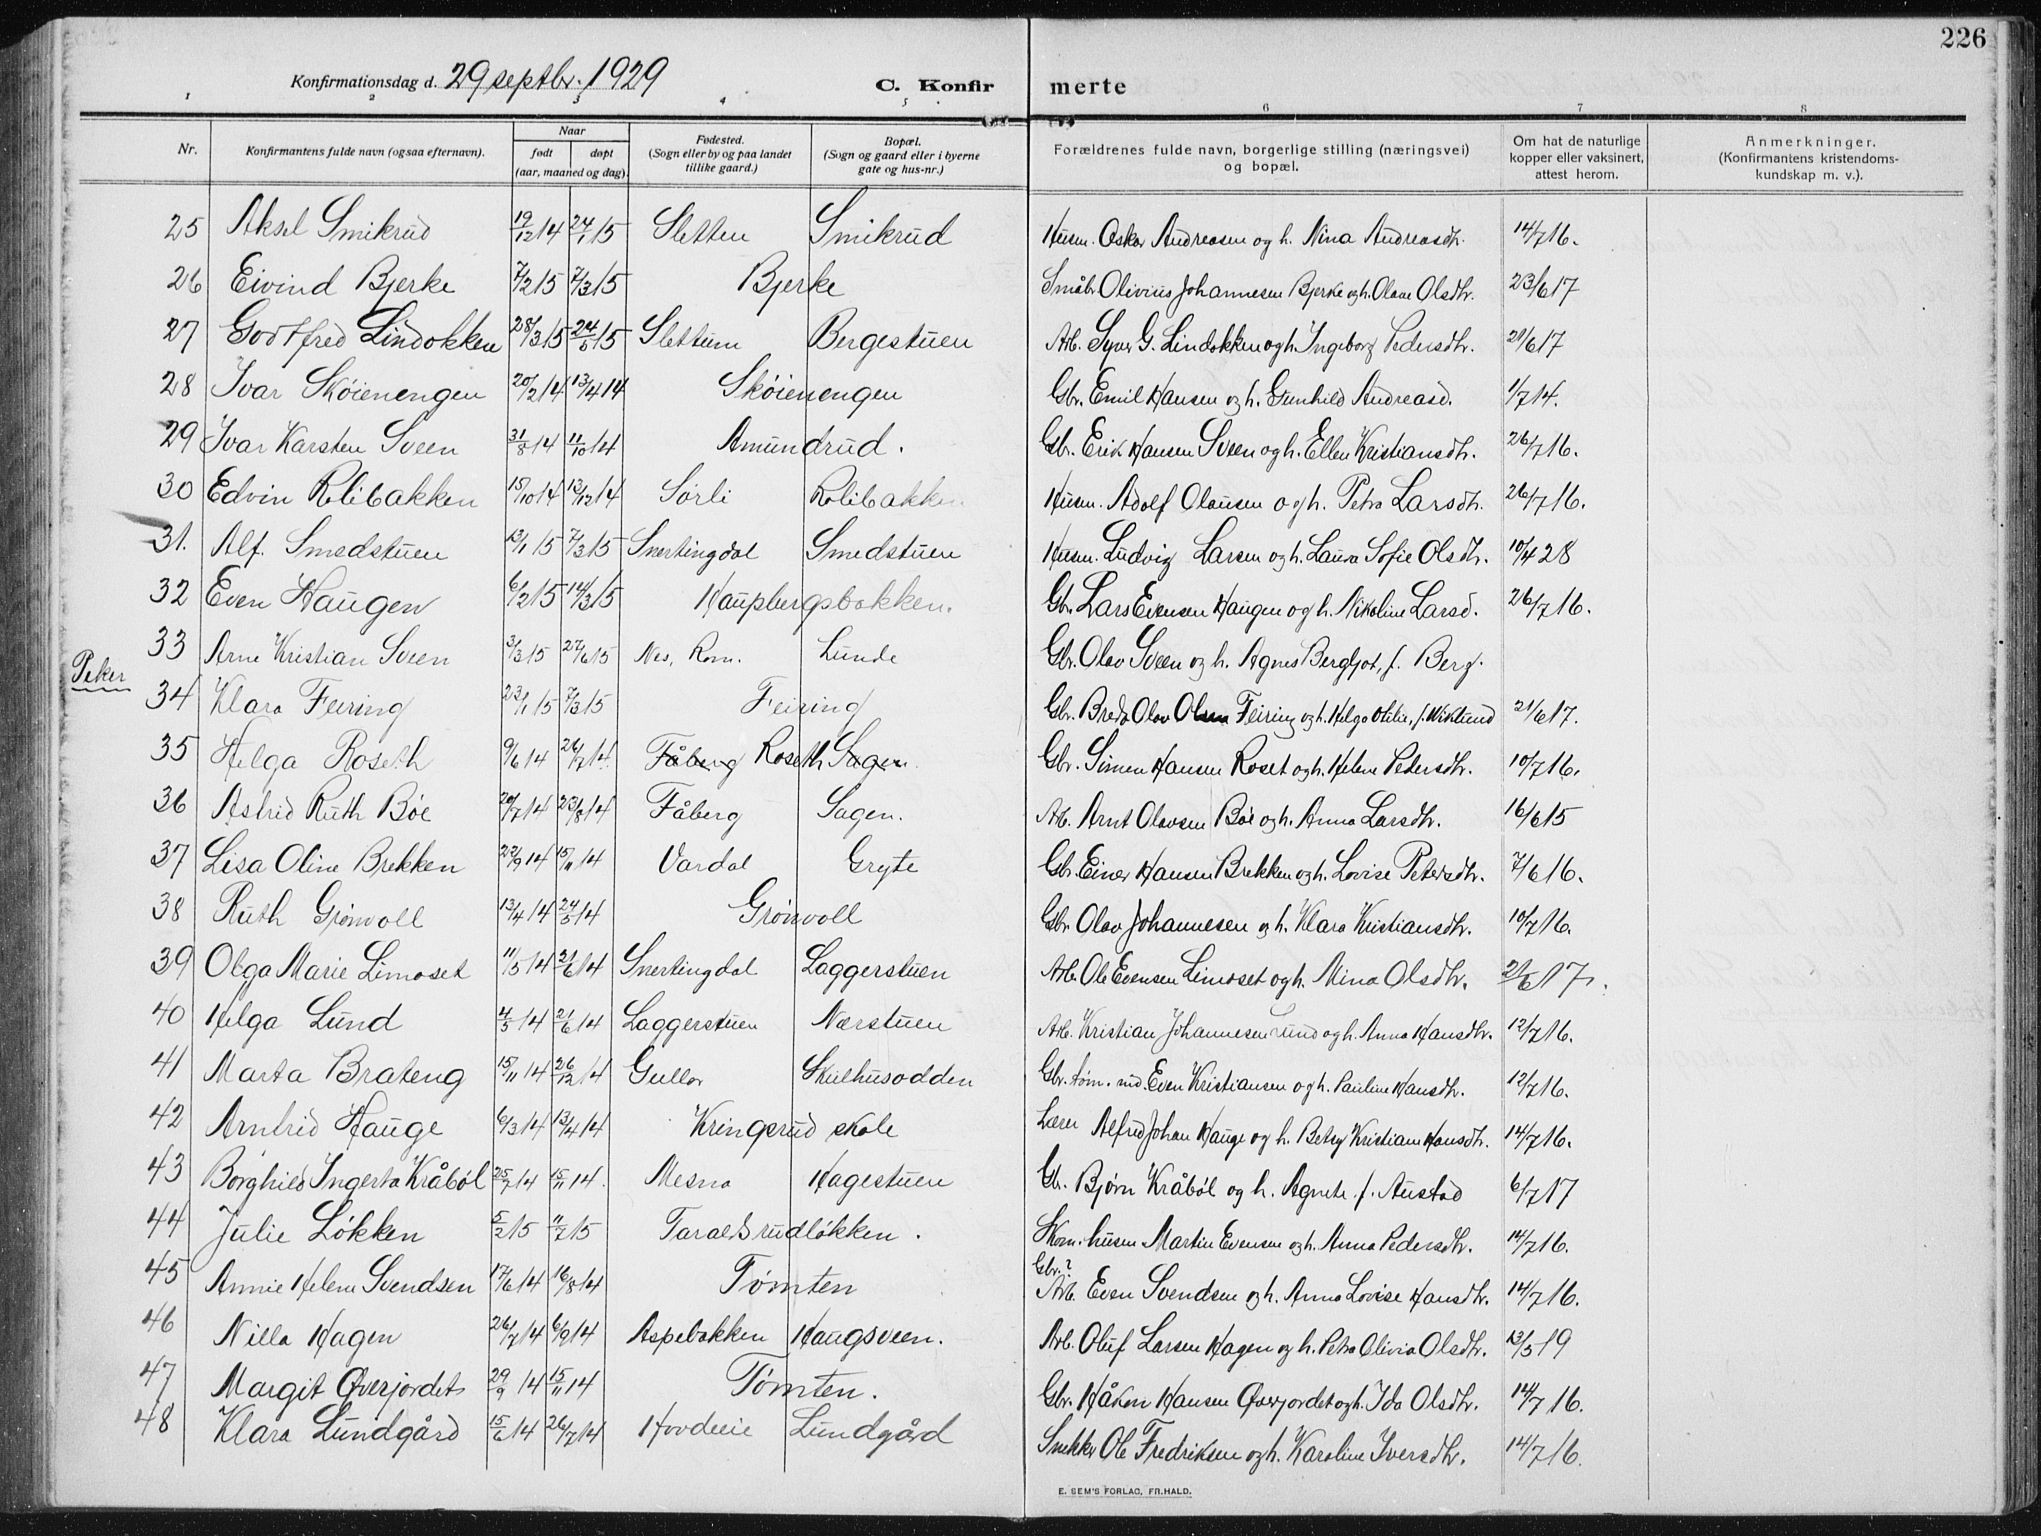 226
Konfirmationsdag d. 29 septbr. 1929
C. Konfirmerte
1 2 3 4 5 6 7 8
Nr. Konfirmantens fulde navn (ogsaa efternavn). Naar født døpt (aar, maaned og dag). Fødested. (Sogn eller by og paa landet tillike gaard.) Bopæl. (Sogn og gaard eller i byerne gate og hus-nr.) Forældrenes fulde navn, borgerlige stilling (næringsvei) og bopæl. Om hat de naturlige kopper eller vaksinert, attest herom. Anmerkninger. (Konfirmantens kristendomskundskap m. v.).
25 Aksel Smikrud 19/12 14 24/1 15 Sletten Smikrud Husm. Oskar Andreasen og h. Nina Andreasdtr. 14/7 16.
26 Eivind Bjerke 7/2 15 7/3 15 Bjerke Småbr. Olivius Johannesen Bjerke og h. Olave Olsdtr. 23/6 17
27 Gottfred Lindokken 28/3 15 24/5 15 Slettum Bergestuen Arb. Syver G. Lindokken og h. Ingeborg Pedersdtr. 21/6 17
28 Ivar Skøienengen 20/2 14 13/4 14 Skøienengen Gbr. Emil Hansen og h. Gunhild Andreasd. 1/7 14.
29 Ivar Karsten Sveen 31/8 14 11/10 14 Amundrud. Gbr. Erik Hansen Sveen og h. Ellen Kristiansdtr. 26/7 16.
30 Edvin Rolibakken 15/10 14 13/12 14 Sørli Rolibakken Husm. Adolf Olausen og h. Petra Larsdtr. 26/7 16.
31. Alf. Smedstuen 13/1 15 7/3 15 Snertingdal Smedstuen Husm. Ludvig Larsen og h. Laura Sofie Olsdtr. 10/4 28
32 Even Haugen 6/2 15 14/3 15 Haupbergsbakken. Gbr. Lars Evensen Haugen og h. Nikoline Larsd. 26/7 16.
33 Arne Kristian Sveen 3/3 15 27/6 15 Nes, Rom. Lunde Gbr. Olav Sveen og h. Agnes Bergljot, f. Berg.
Peker
34 Klara Feiring 23/1 15 7/3 15 Feiring Gbr. Breda Olav Olsen Feiring og h. Helga Otilie, f. Wiklund 21/6 17.
35 Helga Roseth 9/6 14 26/7 14. Fåberg Roseth Sagen. Gbr. Simen Hansen Roset og h. Helene Pedersdtr. 10/7 16.
36 Astrid Ruth Bøe 20/7 14 23/8 14 Fåberg Sagen. Arb. Arnt Olavsen Bøe og h. Anna Larsdtr. 16/6 15
37 Lisa Oline Brekken 22/9 14 15/11 14 Vardal Gryte Gbr. Einer Hansen Brekken og h. Lovise Petersdtr. 7/6 16.
38 Ruth Grønvoll 13/4 14 24/5 14 Grønvoll Gbr. Olav Johannesen og h. Klara Kristiansdtr. 10/7 16.
39 Olga Marie Limoset 11/5 14 21/6 14 Snertingdal Laggerstuen Arb. Ole Evensen Limoset og h. Mina Olsdtr. 21/6 17.
40 Helga Lund 4/5 14 21/6 14 Laggerstuen Nærstuen Arb. Kristian Johannesen Lund og h. Anna Hansdtr. 12/7 16.
41 Marta Brateng 15/11 14 26/12 14 Gullor Skulhusodden Gbr. tøm. md. Even Kristiansen og h. Pauline Hansdtr. 12/7 16.
42 Arnfrid Hauge 6/3 14 13/4 14 Kringsrud skole Lærer Alfred Johan Hauge og h. Betsy Kristiane Hansdtr. 14/7 16.
43 Borghild Ingerta Kråbøl 25/7 14 15/11 14. Mesna Hagestuen Gbr. Bjørn Kråbøl og h. Agnete f. Austad 6/7 17
44 Julie Løkken 5/2 15 11/7 15 Taraldsrudløkken. Skom. husm Martin Evensen og h. Anna Pedersdtr. 14/7 16.
45 Annie Helene Svendsen 17/6 14 16/8 14 Tømten Gbr.? Arb. Even Svendsen og h. Anna Lovise Hansdtr. 14/7 16.
46 Nilla Hagen 26/7 14 6/9 14 Aspebakken Haugsveen. Arb. Oluf Larsen Hagen og h. Petra Olivia Olsdtr. 13/5 19
47 Margit Øverjordet 29/9 14 15/11 14 Tømten. Gbr. Håkon Hansen Øverjordet og h. Ida Olsdtr. 14/7 16.
48 Klara Lundgård 15/6 14 26/7 14 Hovdeeie Lundgård Snekker Ole Fredriksen og h. Karoline Iversdtr. 14/7 16.
E. SEM'S FORLAG, FR.HALD.